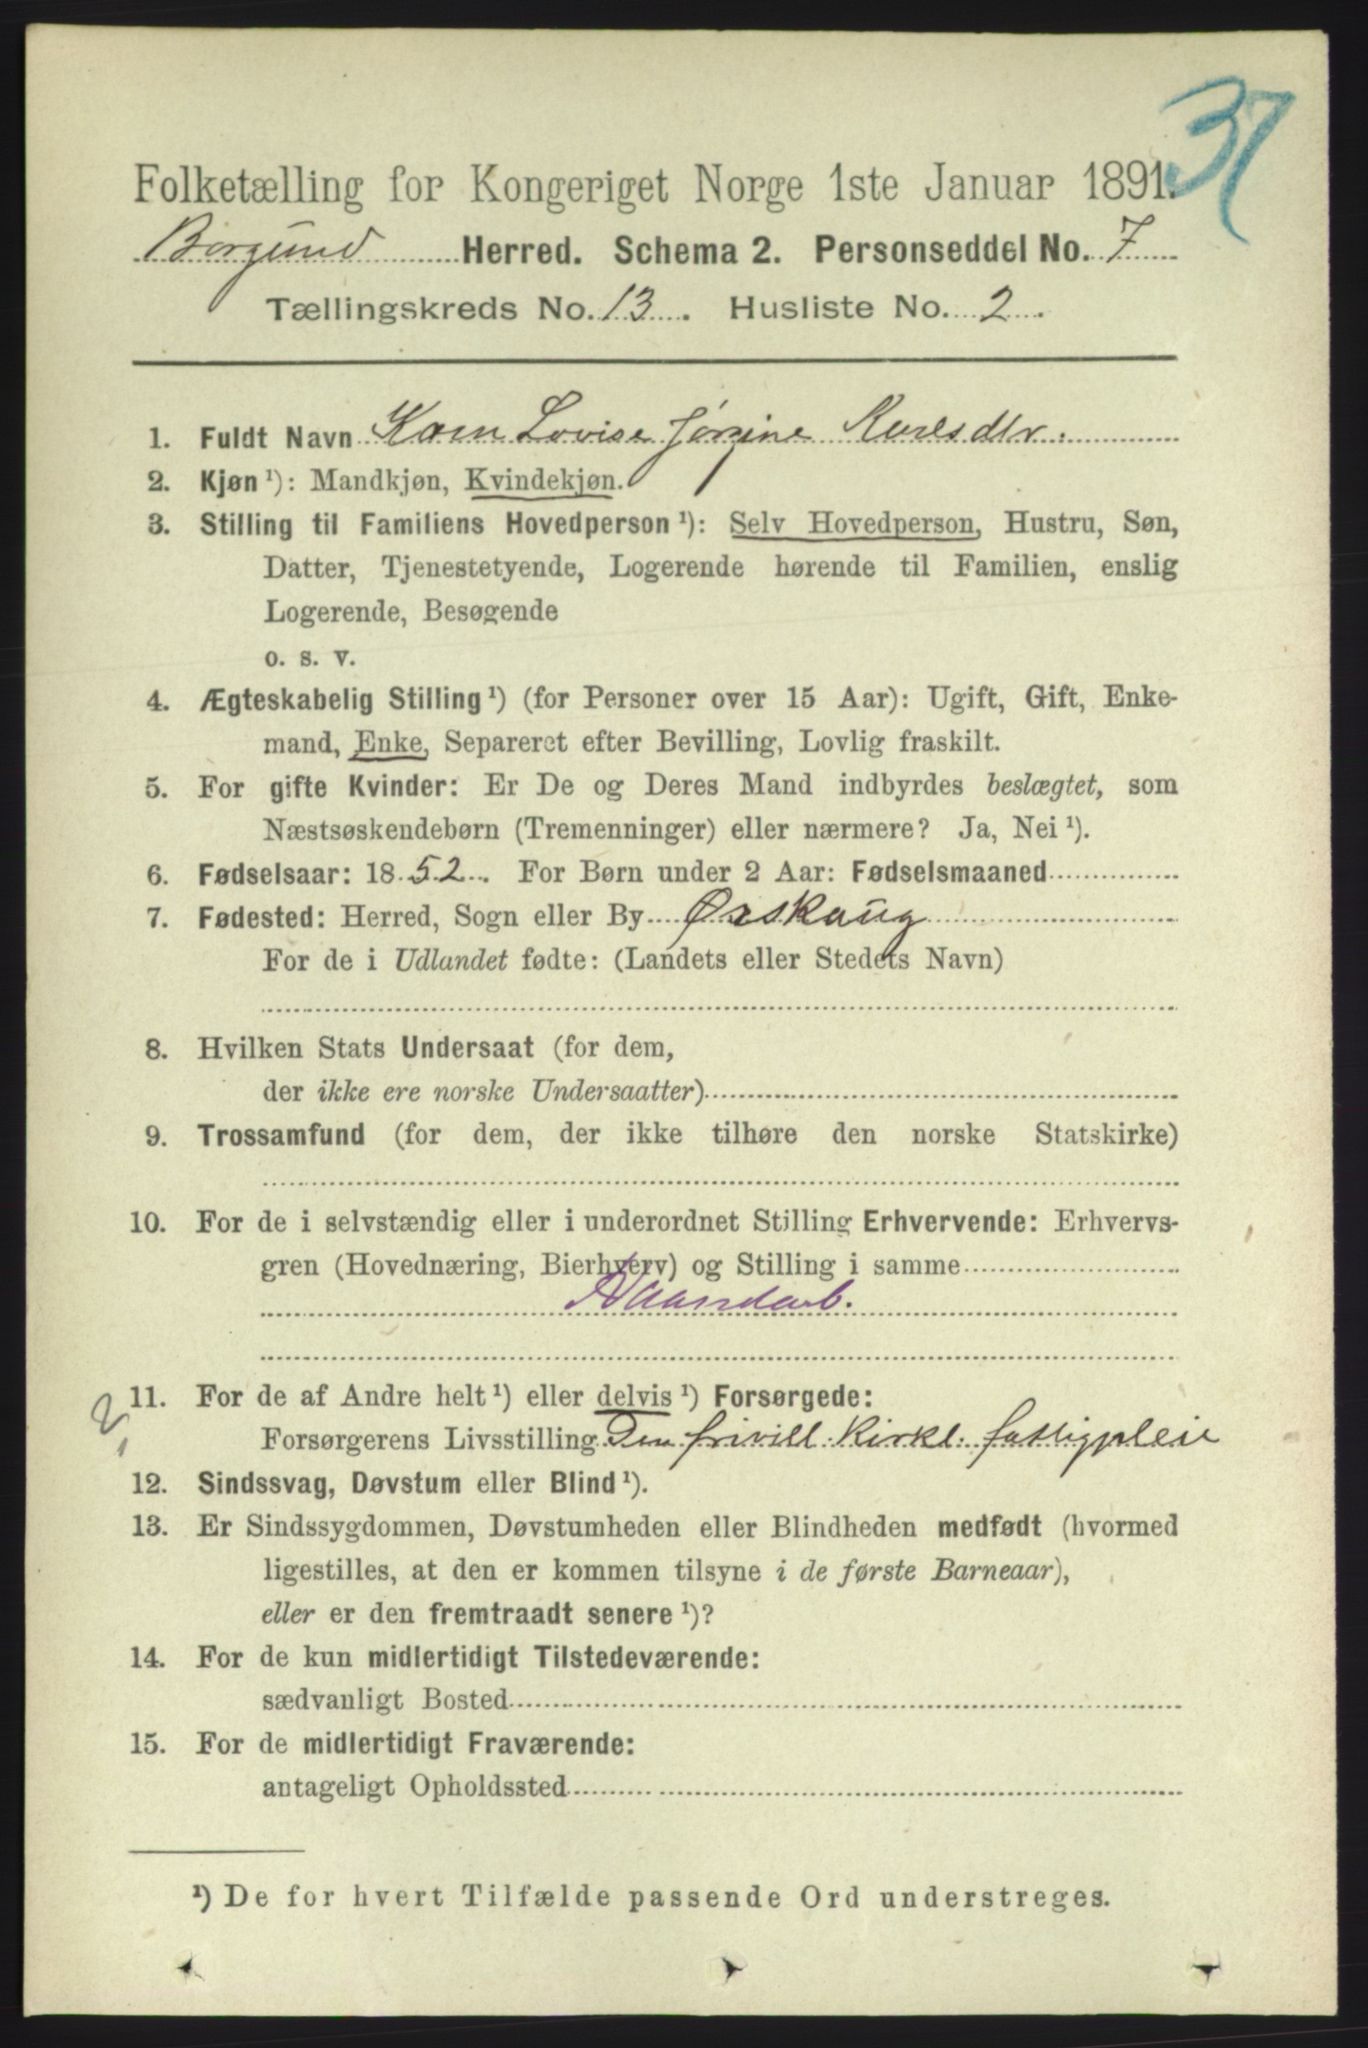 37
Folketælling for Kongeriget Norge 1ste Januar 1891.
Borgund Herred. Schema 2. Personseddel No. 7
Tællingskreds No. 13. Husliste No. 2.
1. Fuldt Navn Karen Lovise Jørgine Karlsdtr.
2. Kjøn ¹): Mandkjøn, Kvindekjøn.
3. Stilling til Familiens Hovedperson ¹): Selv Hovedperson, Hustru, Søn,
Datter, Tjenestetyende, Logerende hørende til Familien, enslig
Logerende, Besøgende
o. s. v.
4. Ægteskabelig Stilling ¹) (for Personer over 15 Aar): Ugift, Gift, Enke-
mand, Enke, Separeret efter Bevilling, Lovlig fraskilt.
5. For gifte Kvinder: Er De og Deres Mand indbyrdes beslægtet, som
Næstsøskendebørn (Tremenninger) eller nærmere? Ja, Nei ¹).
6. Fødselsaar: 1852. For Børn under 2 Aar: Fødselsmaaned
7. Fødested: Herred, Sogn eller By Ørskaug
For de i Udlandet fødte: (Landets eller Stedets Navn)
8. Hvilken Stats Undersaat (for dem,
der ikke ere norske Undersaatter)
9. Trossamfund (for dem, der ikke tilhøre den norske Statskirke)
10. For de i selvstændig eller i underordnet Stilling Erhvervende: Erhvervs-
gren (Hovednæring, Bierhverv) og Stilling i samme
Haandarb.
2. 11. For de af Andre helt ¹) eller delvis ¹) Forsørgede:
Forsørgerens Livsstilling Den frivill. Kirkl. fattigpleie
12. Sindssvag, Døvstum eller Blind ¹).
13. Er Sindssygdommen, Døvstumheden eller Blindheden medfødt (hvormed
ligestilles, at den er kommen tilsyne i de første Barneaar),
eller er den fremtraadt senere ¹)?
14. For de kun midlertidigt Tilstedeværende:
sædvanligt Bosted
15. For de midlertidigt Fraværende:
antageligt Opholdssted
¹) De for hvert Tilfælde passende Ord understreges.